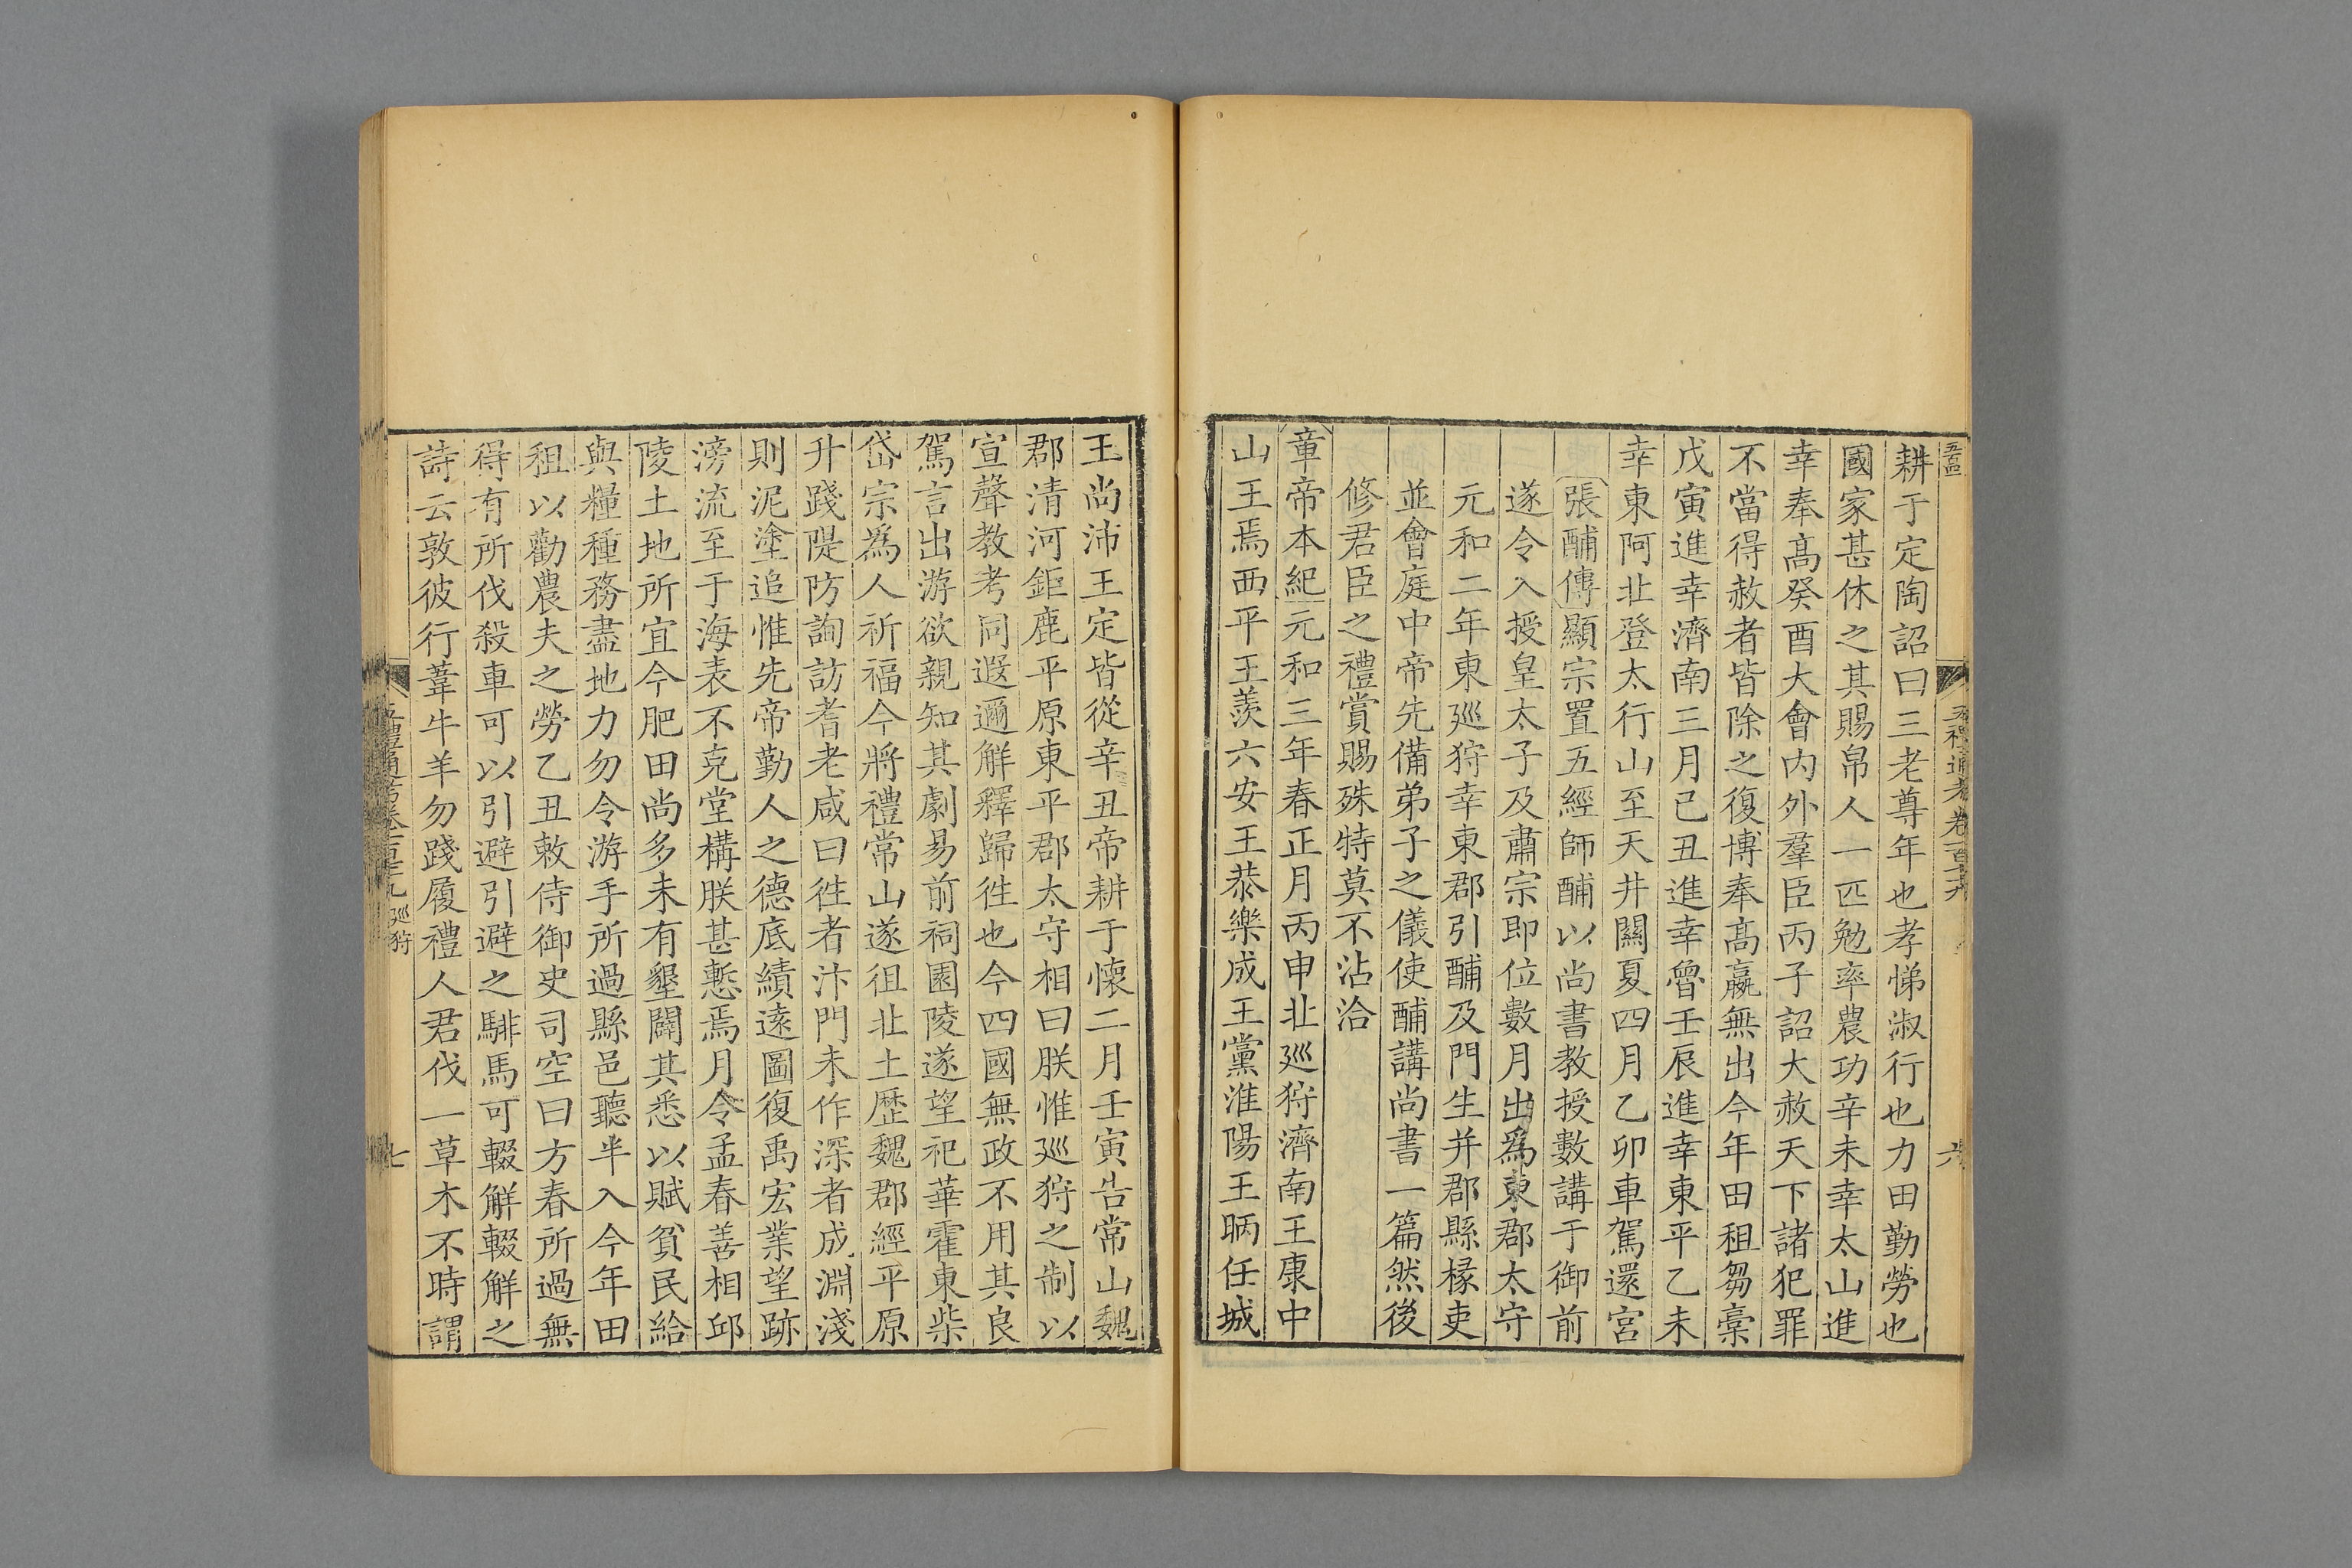 耕于定陶詔曰三老尊年也孝悌淑行也力田勤勞也
國家甚休之其賜帛人一匹勉率農功辛未幸太山進
幸奉高癸酉大會内外羣臣丙子詔大赦天下諸犯罪
不當得赦者皆除之復博奉高嬴無出今年田租芻稾
戊寅進幸濟南三月己丑進幸魯壬辰進幸東平乙未
幸東阿北登太行山至天井關夏四月乙卯車駕還宮
張酺傳顯宗置五經師酺以尚書教授數講于御前
遂令入授皇太子及肅宗即位數月出爲東郡太守
元和二年東廵狩幸東郡引酺及門生并郡縣椽吏
並會庭中帝先備弟子之儀使酺講尚書一篇然後
修君臣之禮賞賜殊特莫不沾洽
章帝本紀元和三年春正月丙申北廵狩濟南王康中
山王焉西平王羨六安王恭樂成王黨淮陽王昞任城
王尚沛王定皆從辛丑帝耕于懷二月壬寅告常山魏
郡清河鉅鹿平原東平郡太守相曰朕惟廵狩之制以
宣聲教考同遐邇解釋歸徃也今四國無政不用其良
駕言出游欲親知其劇易前祠園陵遂望祀華霍東柴
岱宗爲人祈福今將禮常山遂徂北土歷魏郡經平原
升踐隄防詢訪耆老咸曰徃者汴門未作深者成淵淺
則泥塗追惟先帝勤人之德底績遠圖復禹宏業望跡
滂流至于海表不克堂構朕甚慙焉月令孟春善相邱
陵土地所宜今肥田尚多未有墾闢其悉以賦貧民給
與糧種務盡地力勿令游手所過縣邑聽半入今年田
租以勸農夫之勞乙丑敕侍御史司空曰方春所過無
得有所伐殺車可以引避引避之騑馬可輟解輟解之
詩云敦彼行葦牛羊勿踐履禮人君伐一草木不時謂
五禮通考卷一百七十九 廵狩
七